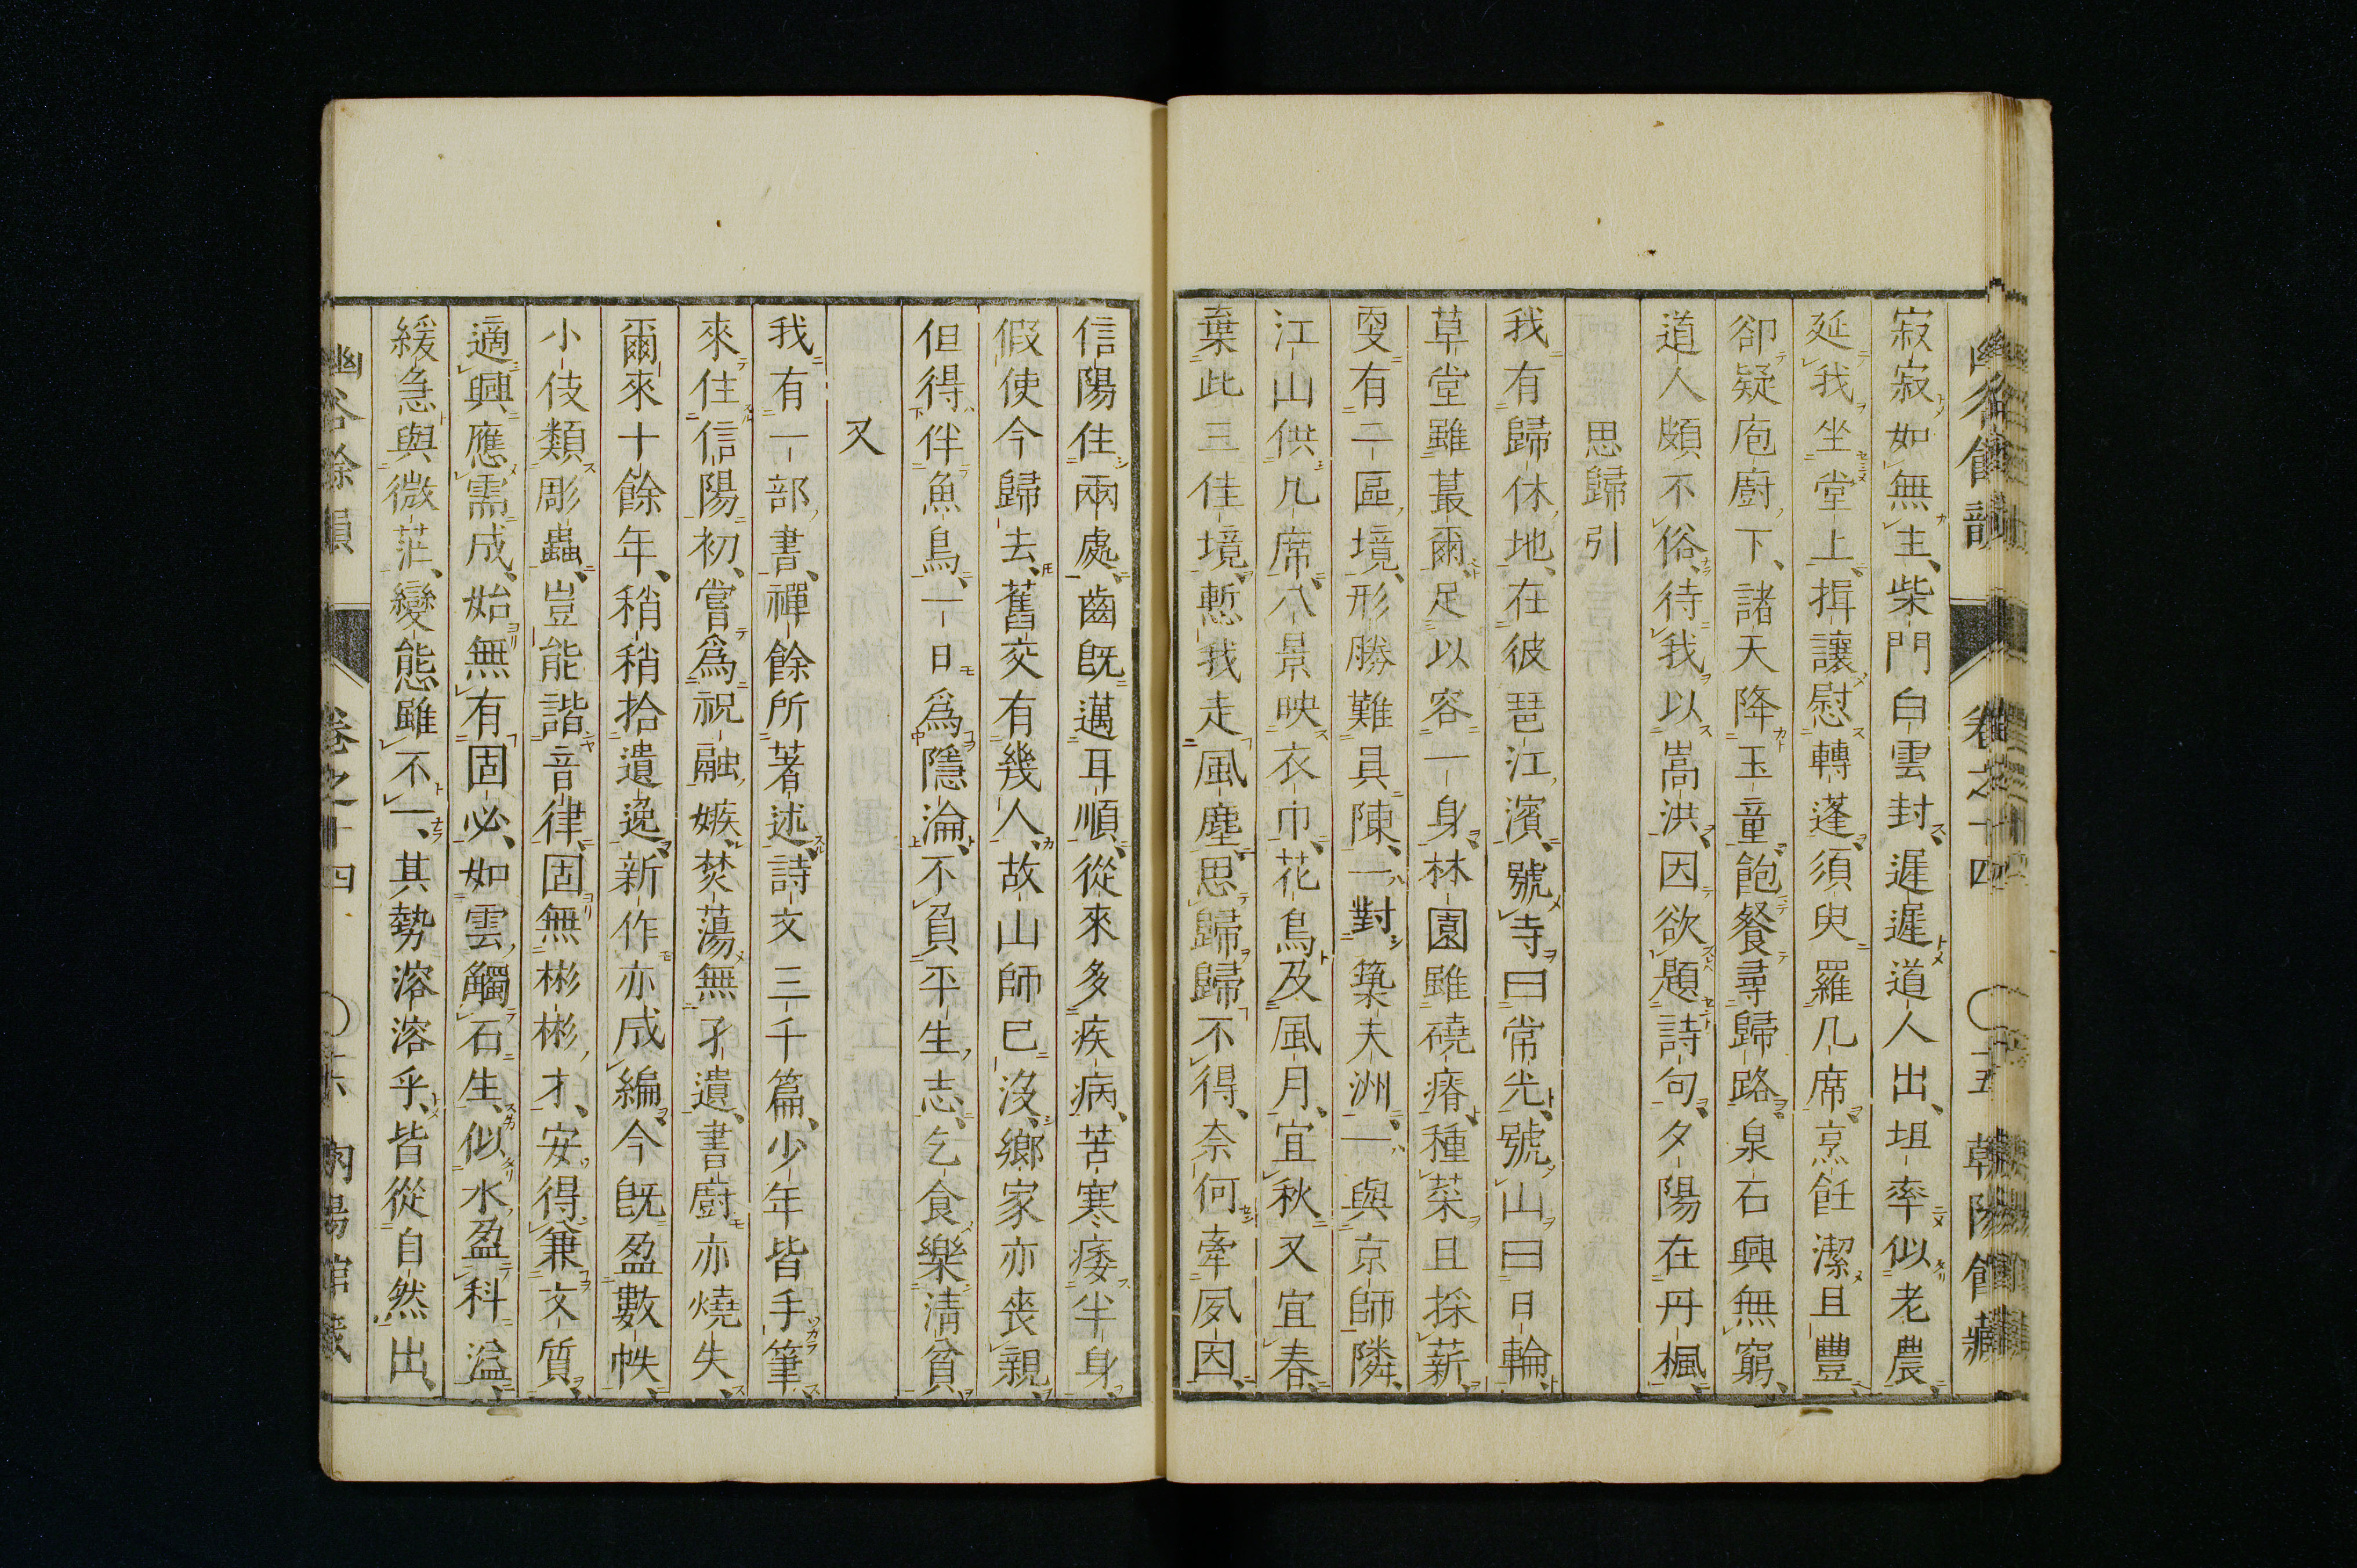 幽谷餘韻 卷之十四 〇十五 朝陽館藏
寂寂如無主、柴門白雲封、遲遲道人出、坦率似老農、
延我坐堂上、揖讓慰轉蓬、須臾羅几席、烹飪潔且豐、
卻疑庖廚下、諸天降玉童、飽餐尋歸路、泉石興無窮、
道人頗不俗、待我以嵩洪、因欲題詩句、夕陽在丹楓、
思歸引
我有歸休地、在彼琶江濱、號寺曰常光、號山曰日輪、
草堂雖蕞爾、足以容一身、林園雖磽瘠、種菜且採薪、
更有二區境、形勝難具陳、一對築夫洲、一與京師隣、
江山供几席、八景映衣巾、花鳥及風月、宜秋又宜春、
棄此三佳境、慙我走風塵、思歸歸不得、奈何牽夙因、
信陽住兩處、齒既邁耳順、從來多疾病、苦寒痿半身、
假使今歸去、舊交有幾人、故山師已沒、鄉家亦喪親、
但得伴魚鳥、一日爲隱淪、不負平生志、乞食樂淸貧、
又
我有一部書、禪餘所著述、詩文三千篇、少年皆手筆、
來住信陽初、嘗爲祝融嫉、焚蕩無孑遺、書廚亦燒失、
爾來十餘年、稍稍拾遺逸、新作亦成編、今既盈數帙、
小伎類彫蟲、豈能諧音律、固無彬彬才、安得兼文質、
適興應需成、始無有固必、如雲觸石生、似水盈科溢、
緩急與微茫、變態雖不一、其勢溶溶乎、皆從自然出、
幽谷餘韻 卷之十四 〇十六 朝陽館藏